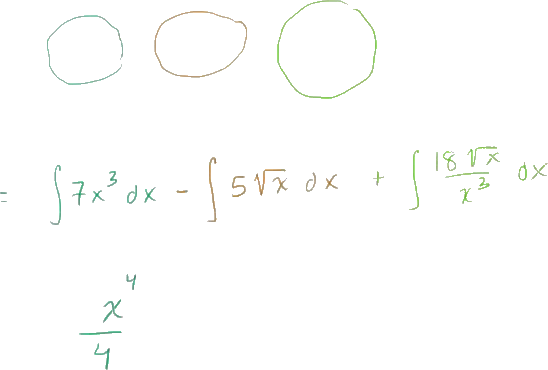 = ∫ 7x³ dx - ∫ 5√x dx + ∫ 18√x/x³ dx
x⁴/4